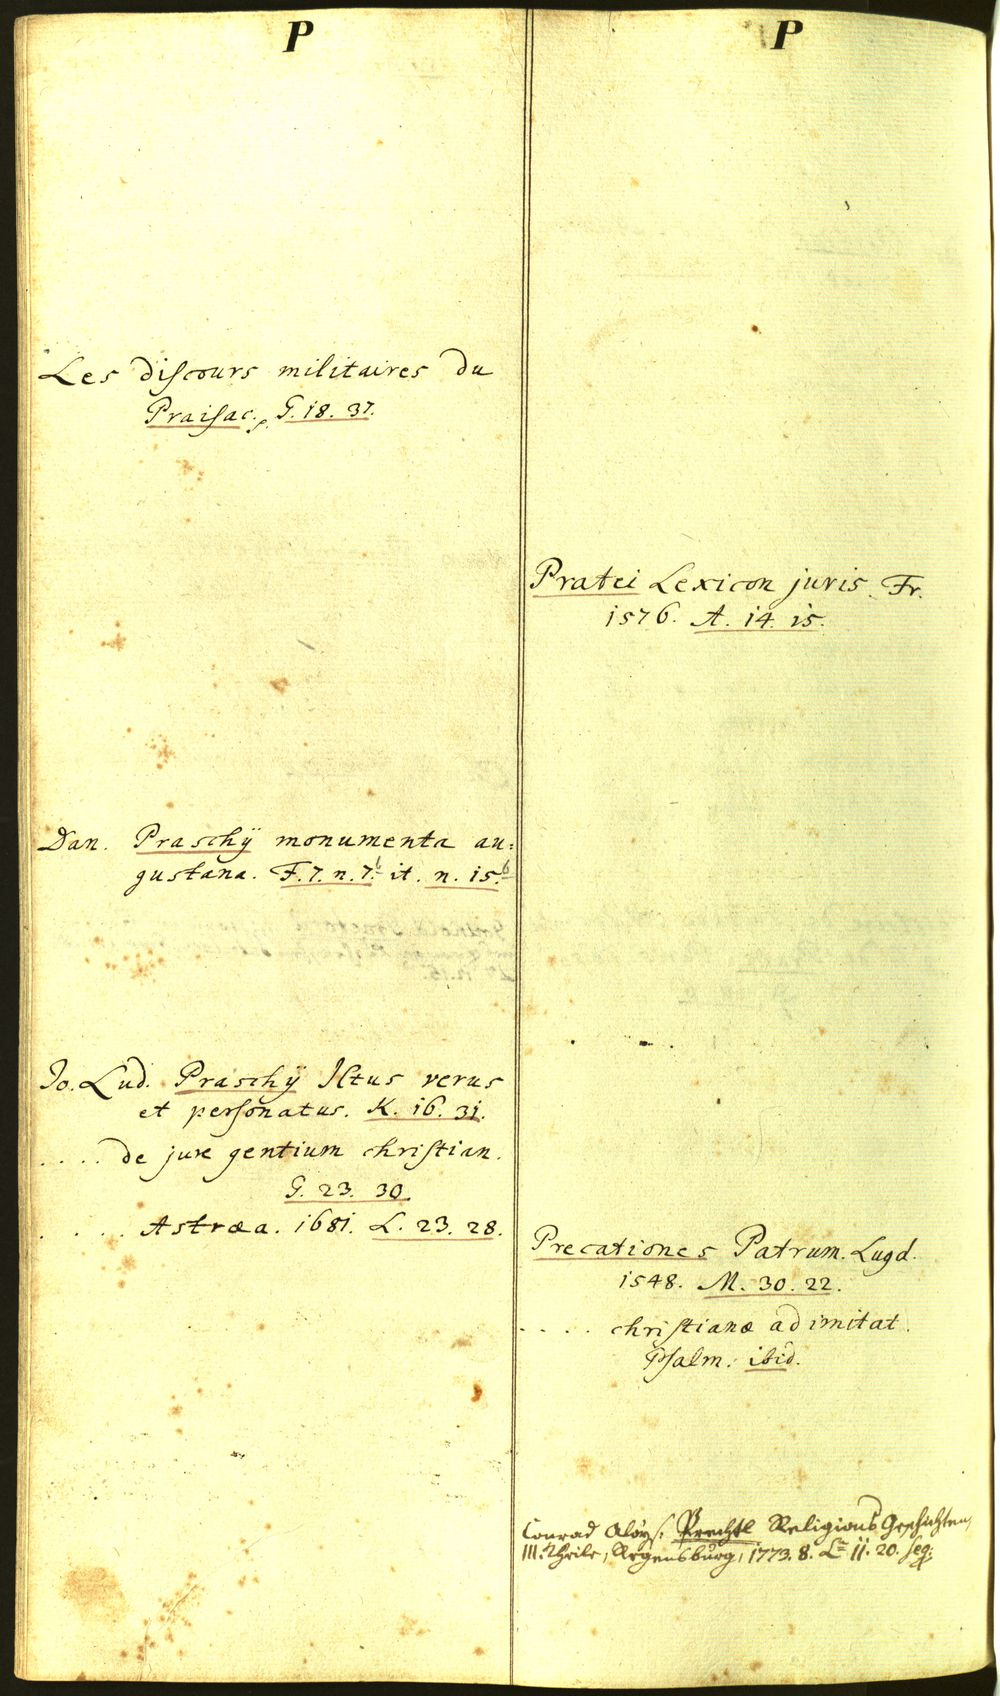 P
Les discours militaires du
Praisac. G. 18. 37.
Dan. Praschÿ monumenta au:
gustana. F. 7. n. 7. b it. n. 15. b
Jo. Lud. Praschÿ Ictus verus
et personatus. K. 16. 31.
.... de jure gentium christian.
G. 23. 30.
.... Astræa. 1681. L. 23. 28.
P
Pratei Lexicon juris. Fr.
1576. A. 14. 15.
Precationes Patrum. Lugd.
1548. M. 30. 22.
.... christianæ ad imitat.
Psalm. ibid.
Conrad Aloys. Prechtl Religions Geschichten,
III. Theile, Regensburg, 1773. 8. L 11. 20. seq.